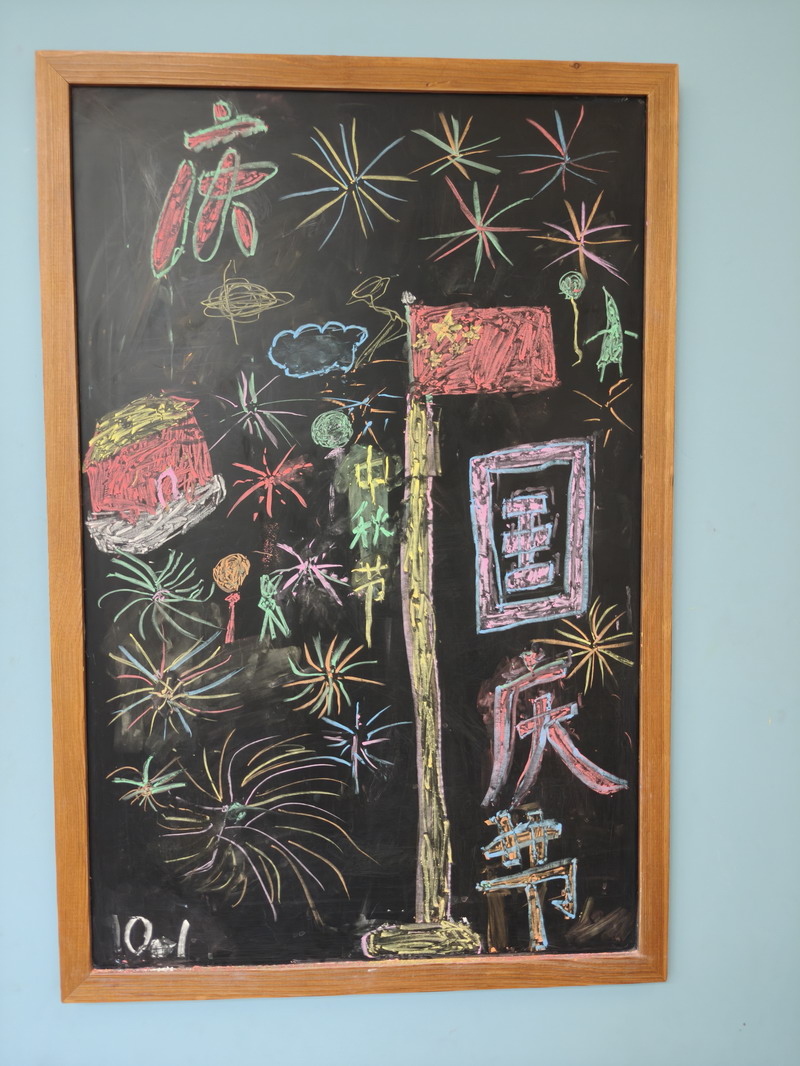 庆
国庆节
中秋节
10.1